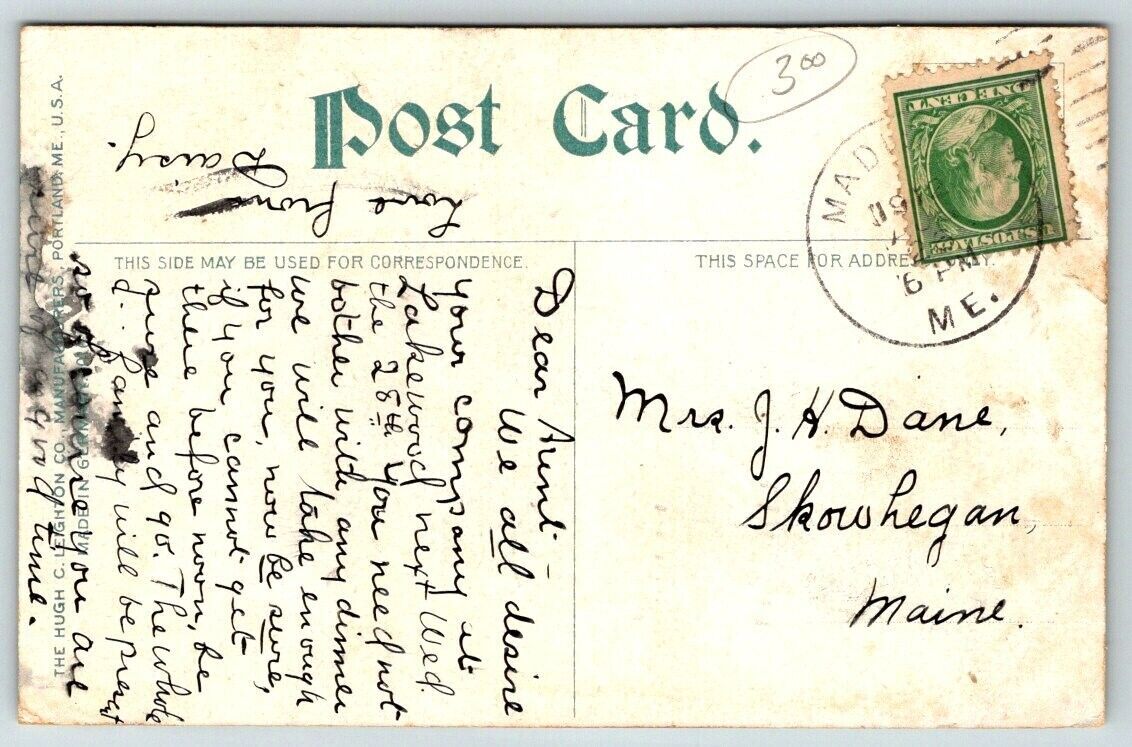 Post Card.
3 00
ONE CENT
U.S. POSTAGE
MAD
6 PM
ME.
THIS SIDE MAY BE USED FOR CORRESPONDENCE.
THIS SPACE FOR ADDRE
Mrs. J. H. Dane,
Skowhegan,
Maine.
Dear Aunt-
We all desire
your company at
Lakewood next Wed.
the 28th you need not
bother with any dinner
we will take enough
for you, now be sure,
if you cannot get
there before noon, be
sure and go. The whole
family will be present
so come you are
and me.
Love from
Daisy.
THE HUGH C. LEIGHTON CO. MANUFACTURERS, PORTLAND, ME., U.S.A.
MADE IN